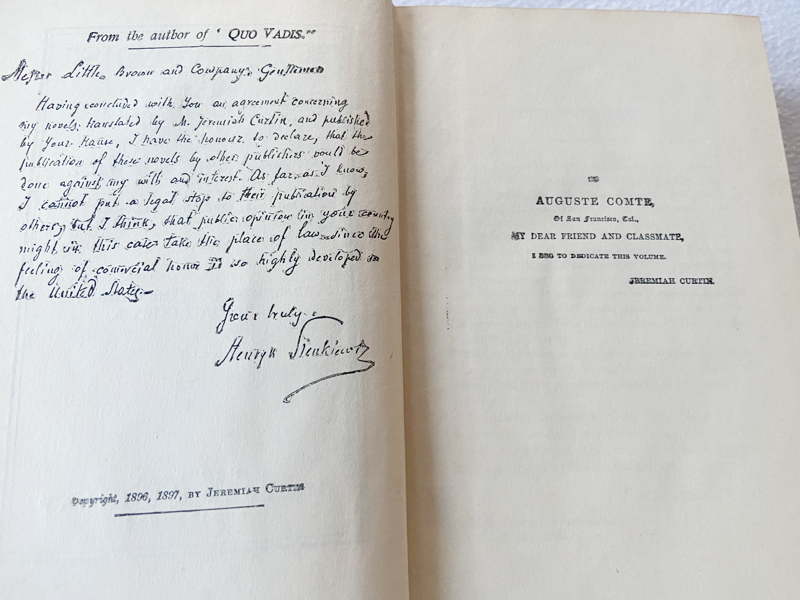 From the author of ' QUO VADIS."
Messrs Little Brown and Company: Gentlemen
Having concluded with You an agreement concerning
my novels, translated by M. Jeremiah Curtin, and published
by Your House, I have the honour to declare, that the
publication of these novels by other publishers would be
done against my will and interest. As far as I know,
I cannot put a legal stop to their publication by
others; but I think, that public opinion in your country
might in this case take the place of law since the
feeling of comercial honor is so highly developed in
the United States.
Yours truly
Henryk Sienkiewicz
Copyright, 1896, 1897, BY JEREMIAH CURTIN
TO
AUGUSTE COMTE,
Of San Francisco, Cal.,
MY DEAR FRIEND AND CLASSMATE,
I BEG TO DEDICATE THIS VOLUME.
JEREMIAH CURTIN.